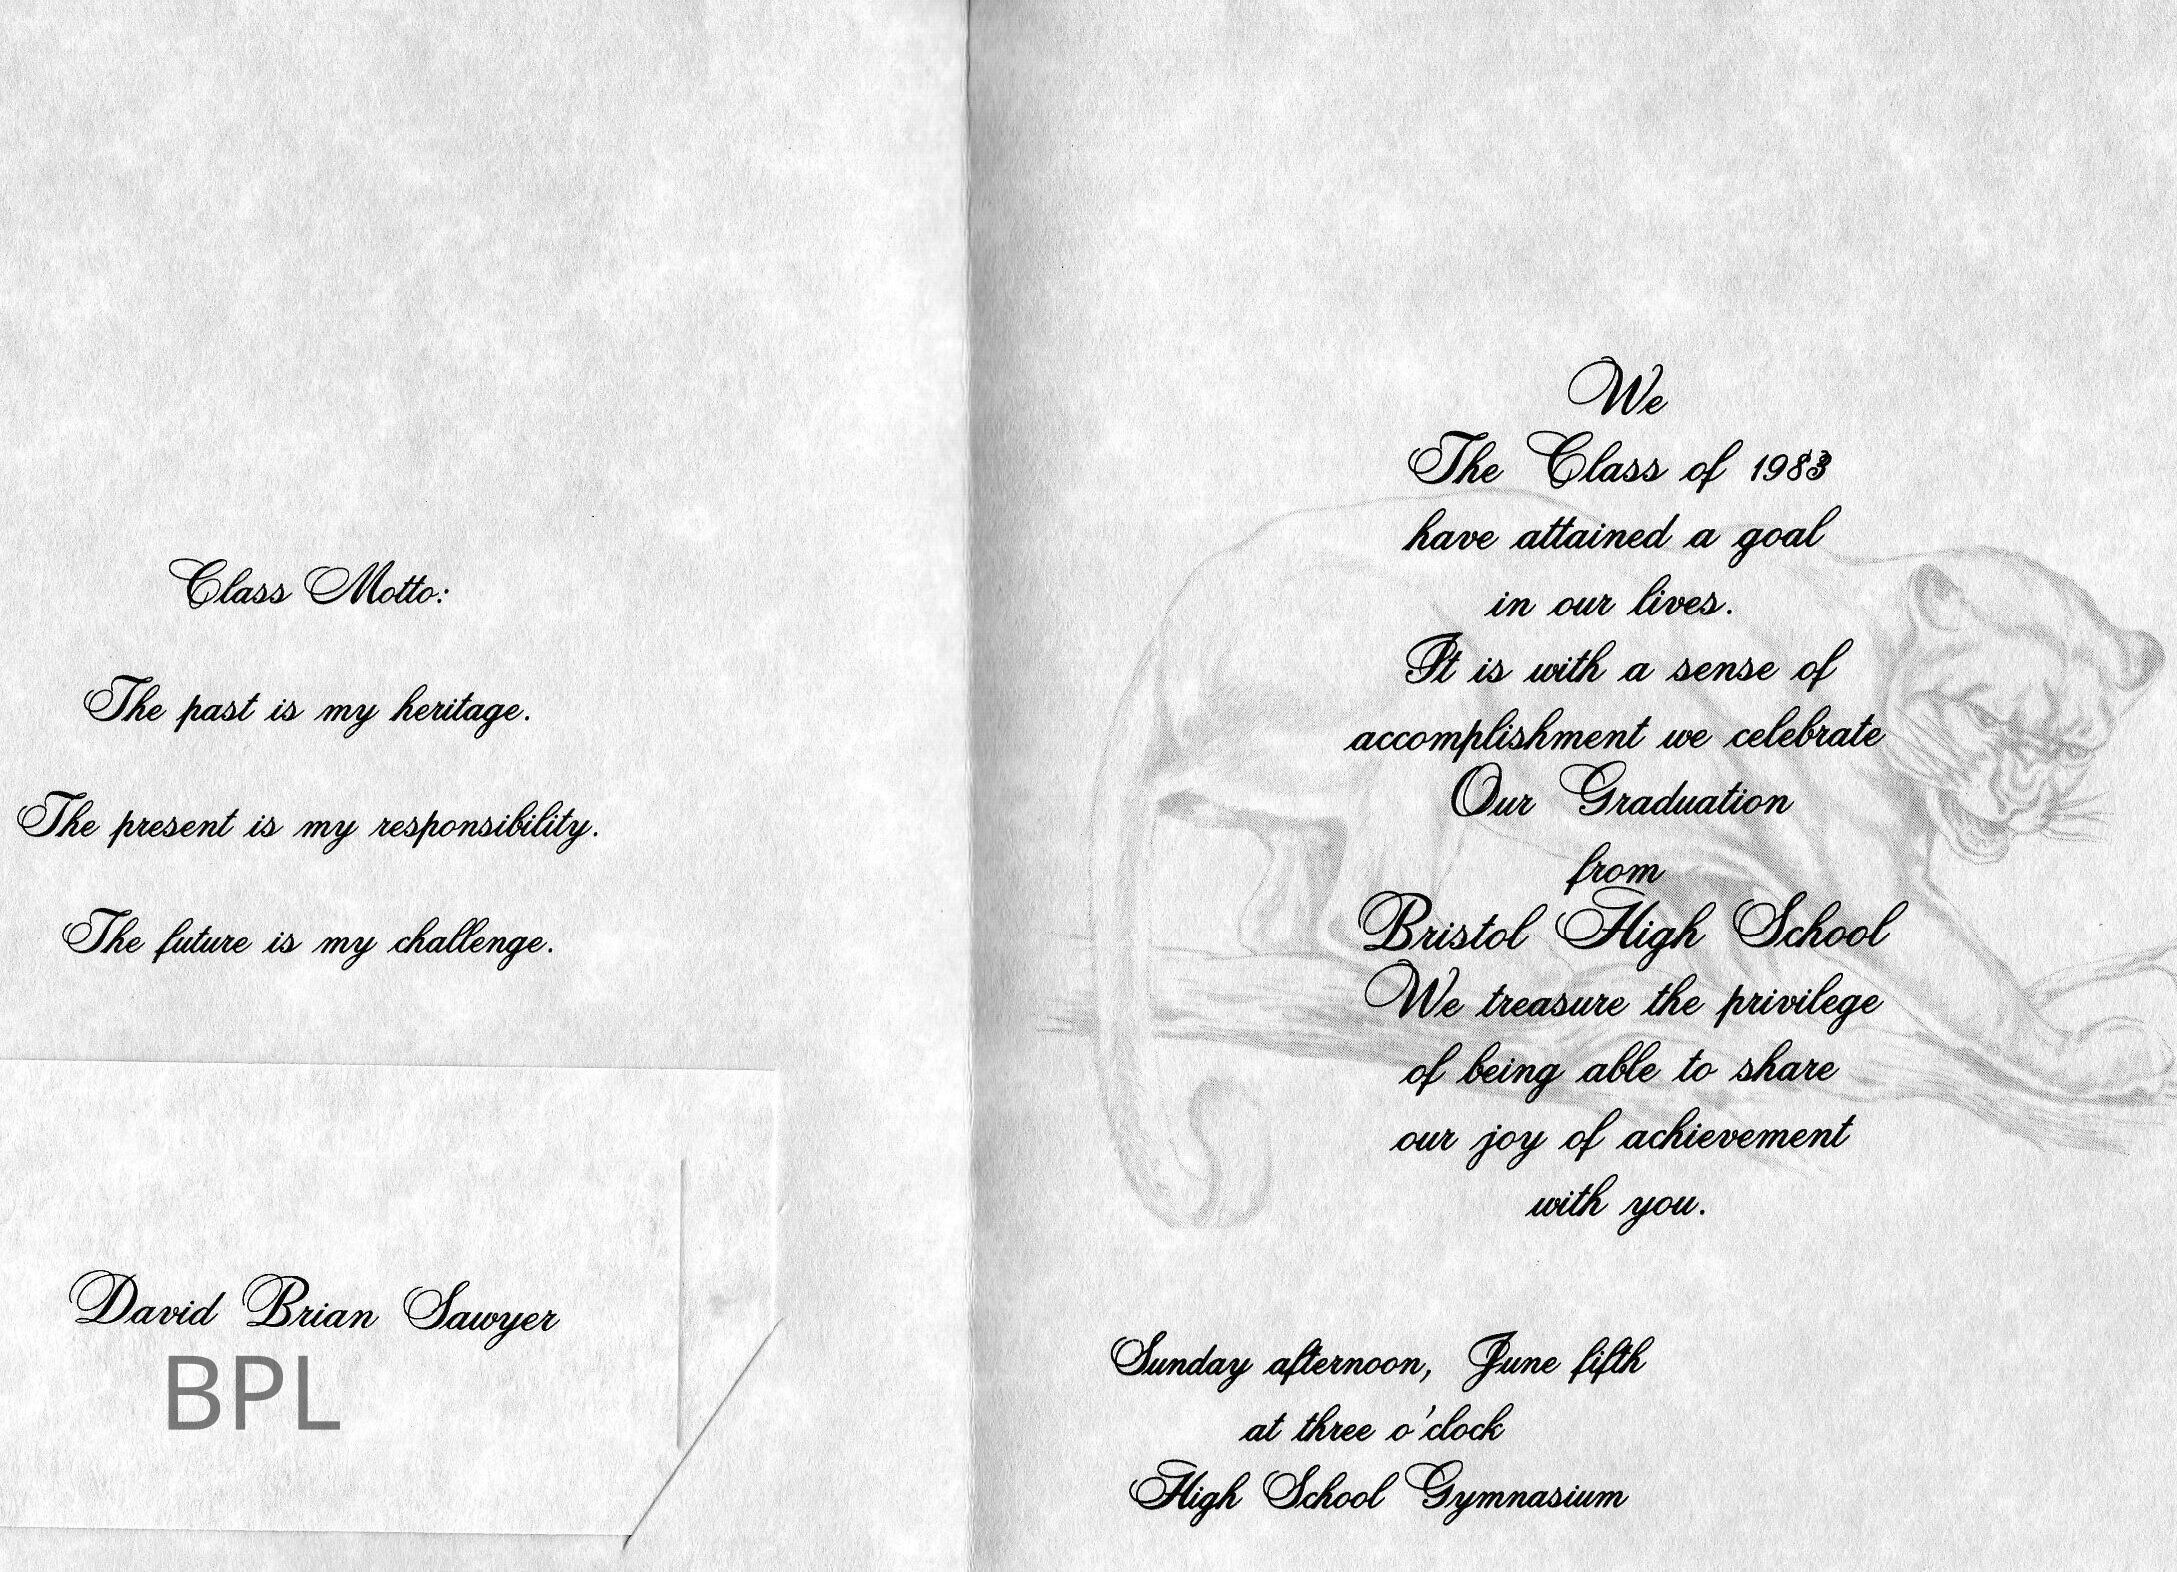 Class Motto:
The past is my heritage.
The present is my responsibility.
The future is my challenge.
David Brian Sawyer
BPL
We
The Class of 1983
have attained a goal
in our lives.
It is with a sense of
accomplishment we celebrate
Our Graduation
from
Bristol High School
We treasure the privilege
of being able to share
our joy of achievement
with you.
Sunday afternoon, June fifth
at three o'clock
High School Gymnasium